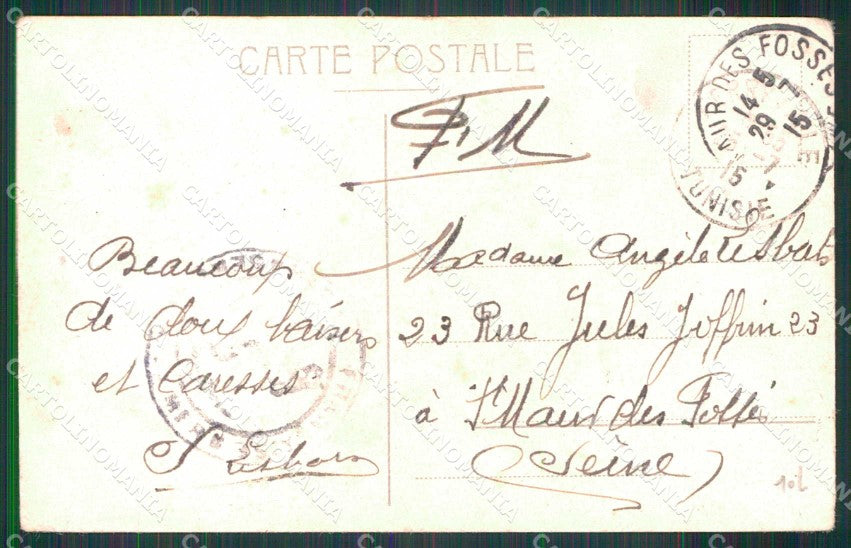 CARTE POSTALE
F.M
ST MAUR DES FOSSES
14 29
5 7 15
Beaucoup
de doux baisers
et Caresses
Madame Angèle
23 Rue Jules Joffrin 23
à St Maur des Fossés
(Seine)
10L
CARTOLINOMANIA